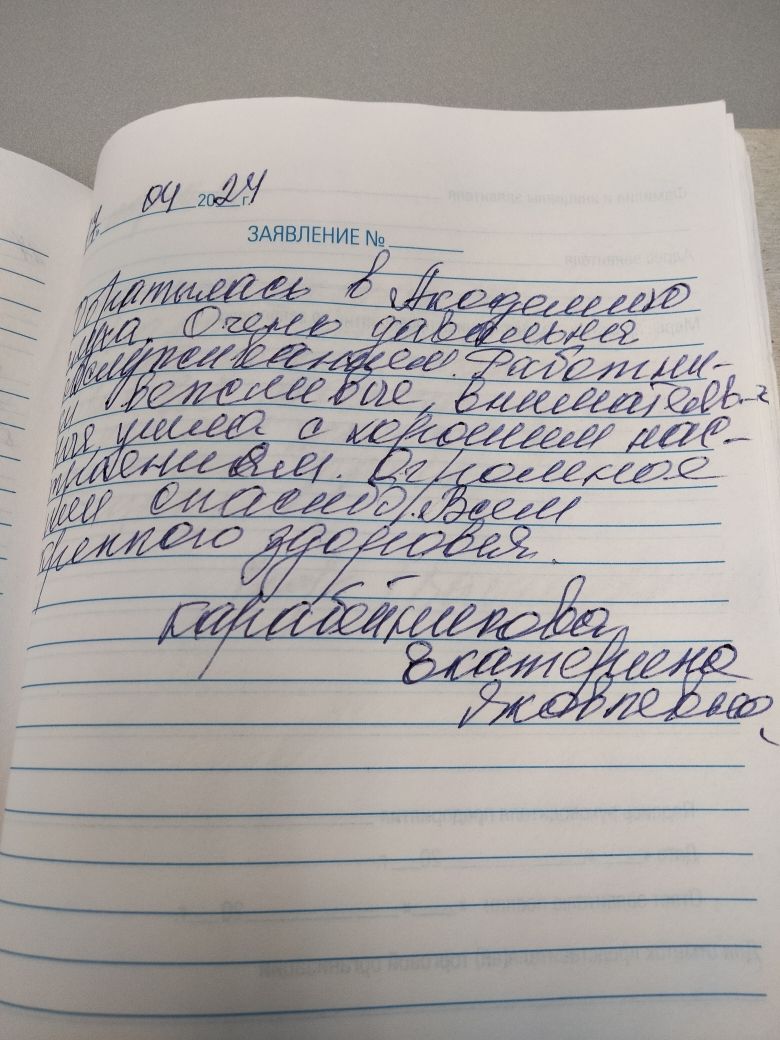 04 2024 г.
ЗАЯВЛЕНИЕ №
Обратилась в Академию
слуха. Очень давольная
обслуживанием. Работни-
ки вежливые, вниматель-
ная ушла с хорошим нас-
троением. Огромное
спасибо. Всем
крепкого здоровья.
Карабейникова
Екатерина
Яковлевна